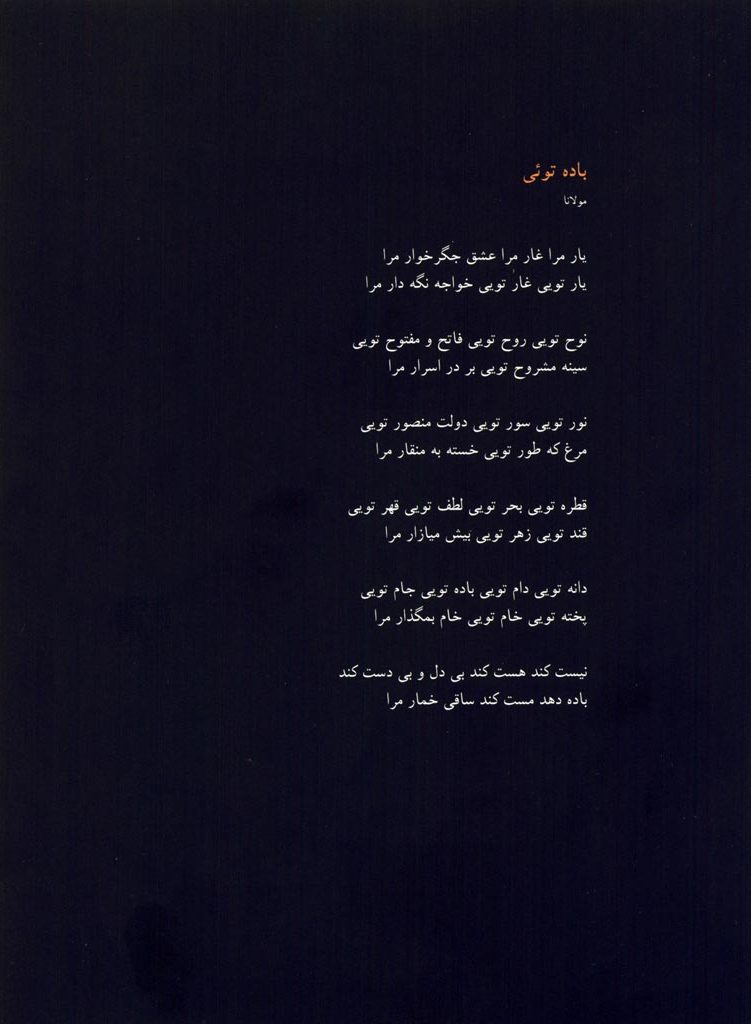 باده توئی
مولانا
یار مرا غار مرا عشق جگرخوار مرا
یار تویی غار تویی خواجه نگه دار مرا
نوح تویی روح تویی فاتح و مفتوح تویی
سینه مشروح تویی بر در اسرار مرا
نور تویی سور تویی دولت منصور تویی
مرغ که طور تویی خسته به منقار مرا
قطره تویی بحر تویی لطف تویی قهر تویی
قند تویی زهر تویی بیش میازار مرا
دانه تویی دام تویی باده تویی جام تویی
پخته تویی خام تویی خام بمگذار مرا
نیست کند هست کند بی دل و بی دست کند
باده دهد مست کند ساقی خمار مرا